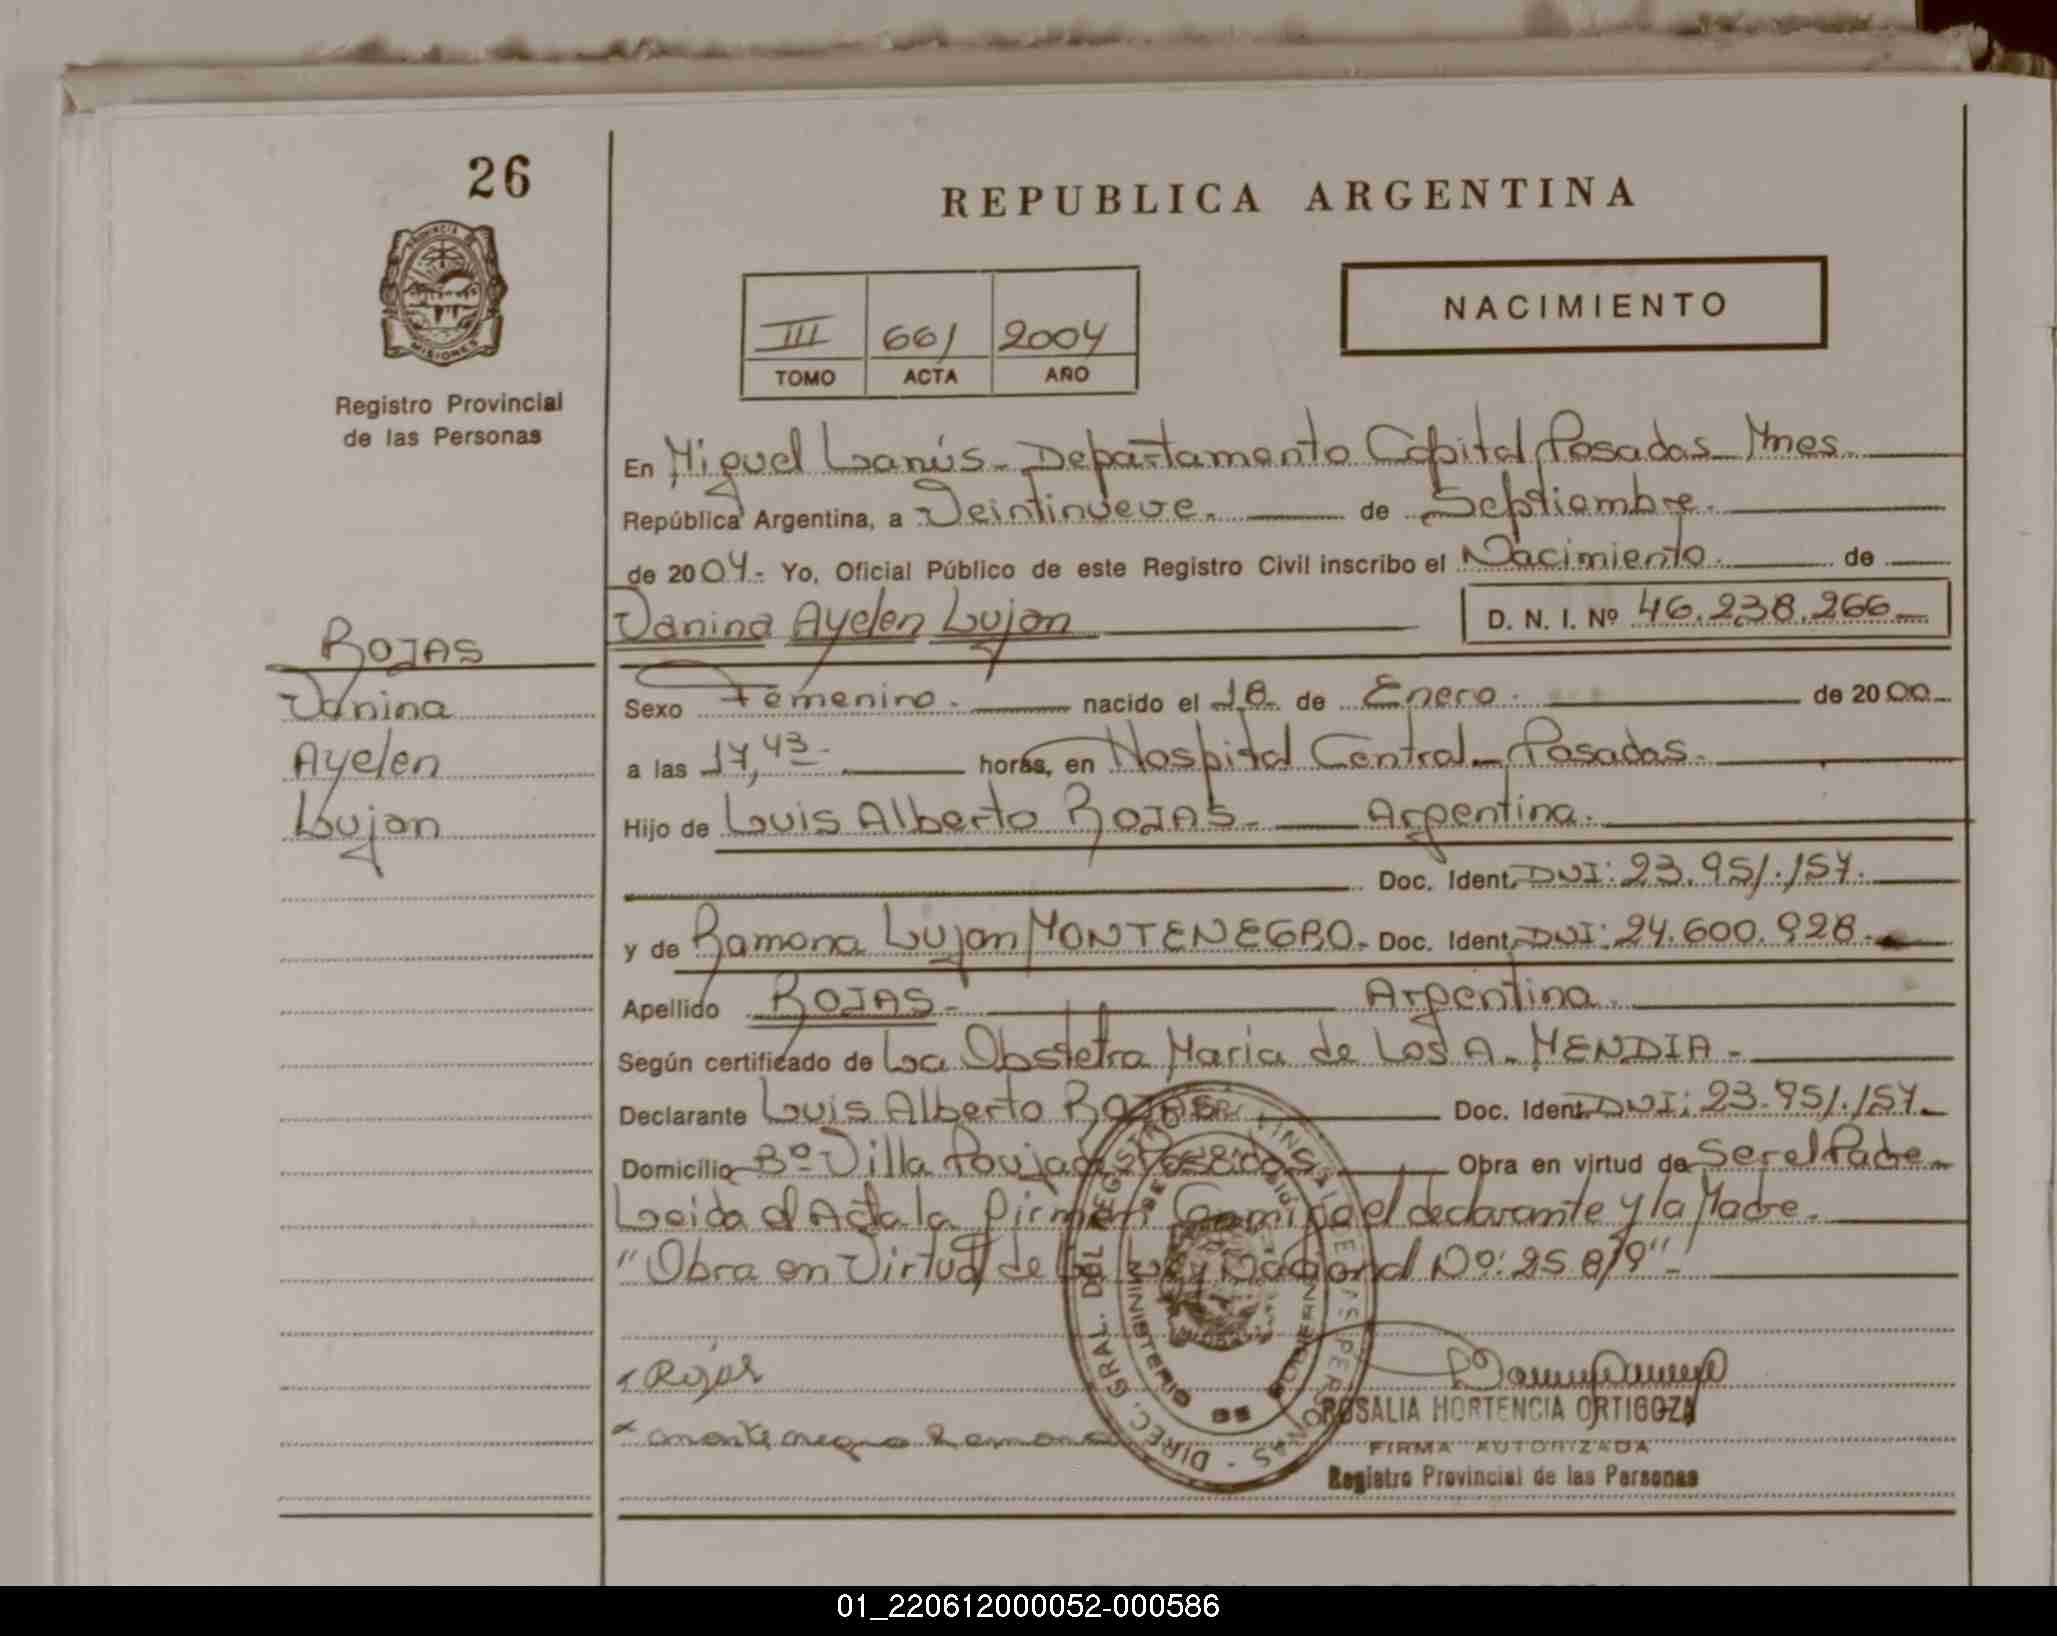 26
REPUBLICA ARGENTINA
PROVINCIA DE
MISIONES
Registro Provincial
de las Personas
III 661 2004
TOMO ACTA AÑO
NACIMIENTO
En Miguel Lanús - Departamento Capital Posadas Mnes
República Argentina, a Veintinueve. de Septiembre.
de 2004- Yo, Oficial Público de este Registro Civil inscribo el Nacimiento. de
Vanina Ayelen Lujan
D. N. I. Nº 46.238.266
ROJAS
Vanina
Ayelen
Lujan
Sexo Femenino. nacido el 18 de Enero. de 2000
a las 17,43 horas, en Hospital Central - Posadas.
Hijo de Luis Alberto ROJAS - Argentina.
Doc. Ident. DNI: 23.951.157.
y de Ramona Lujan MONTENEGRO - Doc. Ident. DNI: 24.600.928.
Apellido ROJAS - Argentina.
Según certificado de La Obstetra Maria de Los A. MENDIA -
Declarante Luis Alberto ROJAS Doc. Ident. DNI: 23.951.157.
Domicilio Bº Villa Poujade Posadas Obra en virtud de Ser el Padre
Leida el Acta la firman Conmigo el declarante y la Madre.
"Obra en Virtud de la Ley Nacional Nº: 25 819" -
Rojas
montenegro Ramona
DIREC. GRAL. DEL REGISTRO PROVINCIAL DE LAS PERSONAS -
MINISTERIO DE GOBIERNO
ROSALIA HORTENCIA ORTIGOZA
FIRMA AUTORIZADA
Registro Provincial de las Personas
01_220612000052-000586